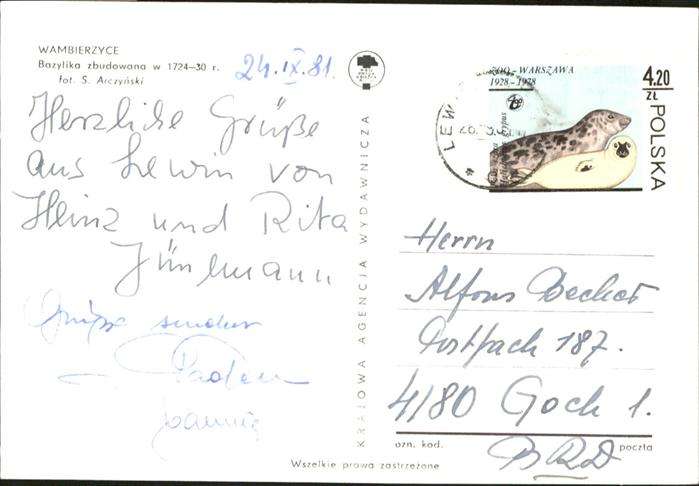 WAMBIERZYCE
Bazylika zbudowana w 1724—30 r.
fot. S. Arczyński
24.IX.81.
Herzliche Grüße
aus Lewin von
Heinz und Rita
Grüße senden
KRAJOWA AGENCJA WYDAWNICZA
ZOO - WARSZAWA
1928 - 1978
4.20
ZŁ
POLSKA
LEW
Herrn
Alfons Becker
Postfach 187.
4180 Goch 1.
BRD
ozn. kod.
poczta
Wszelkie prawa zastrzeżone